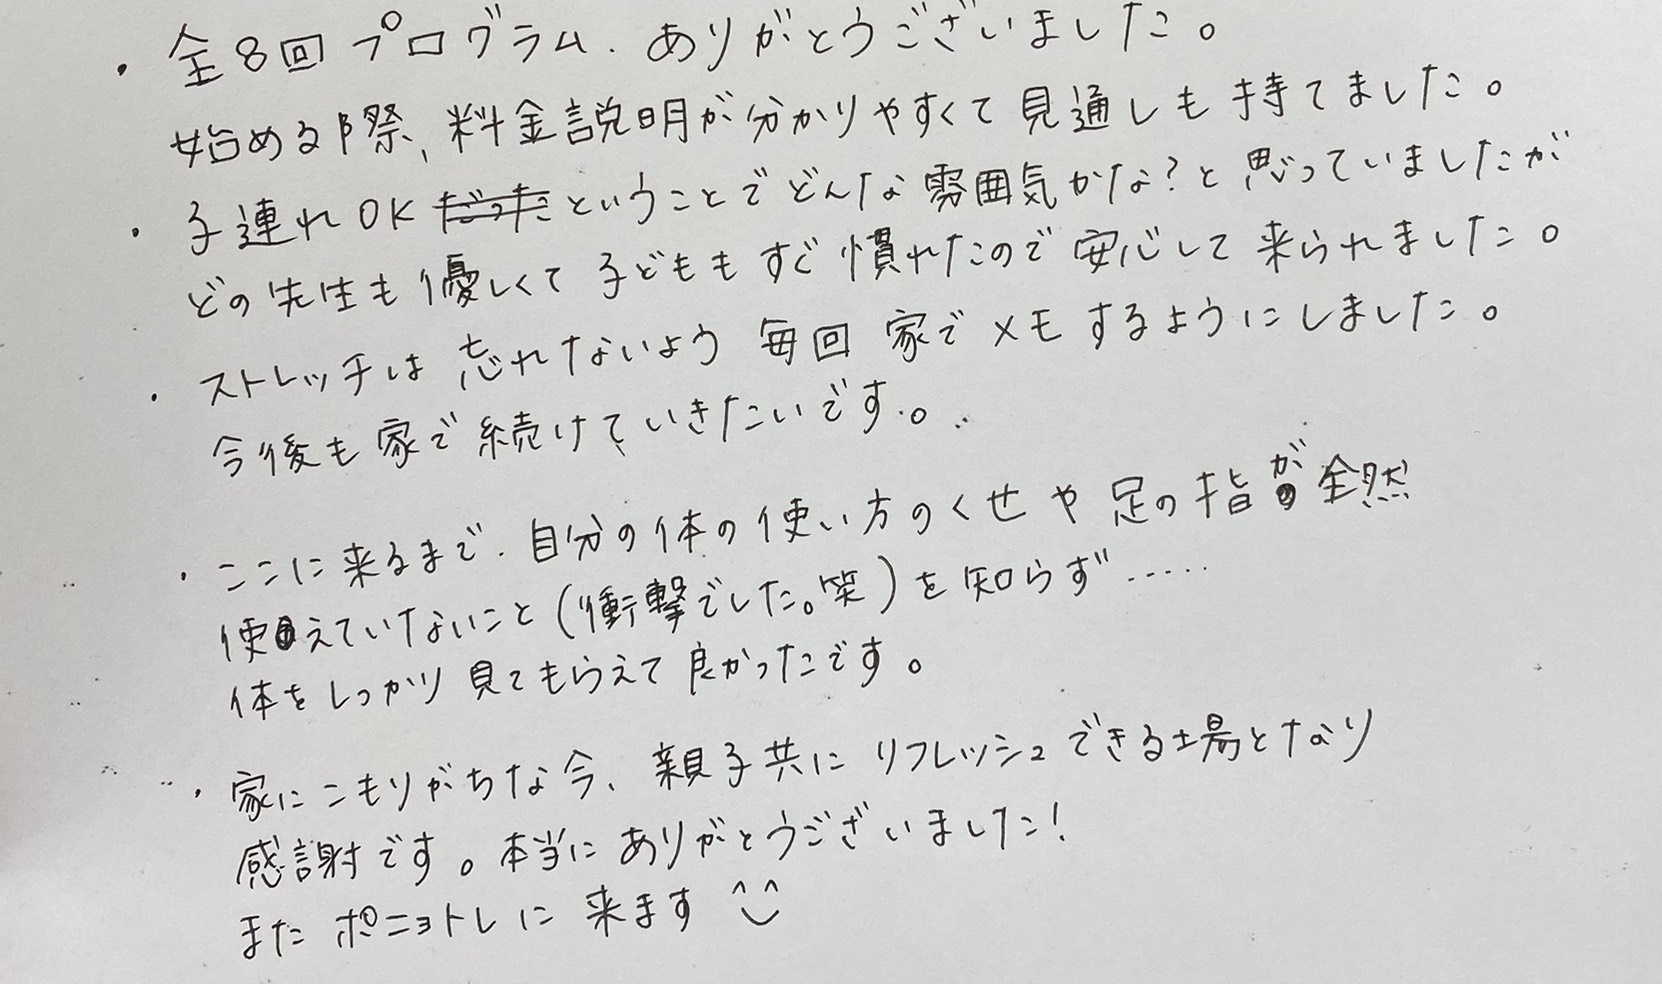 ・全8回プログラム、ありがとうございました。
始める際、料金説明が分かりやすくて見通しも持てました。
・子連れOKだったということでどんな雰囲気かな?と思っていましたが
どの先生も優しくて子どももすぐ慣れたので安心して来られました。
・ストレッチは忘れないよう毎回家でメモするようにしました。
今後も家で続けていきたいです。
・ここに来るまで、自分の体の使い方のくせや足の指が全然
使えていないこと(衝撃でした。笑)を知らず……
体をしっかり見てもらえて良かったです。
・家にこもりがちな今、親子共にリフレッシュできる場となり
感謝です。本当にありがとうございました!
またポニョトレに来ます